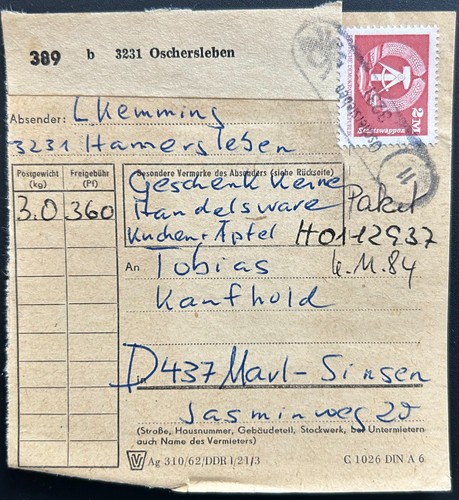 389 b 3231 Oschersleben
2M
Staatswappen
Oschersleben
3231
11
Absender: L Kemming
3231 Hamersleben
Postgewicht (kg)
Freigebühr (Pf)
3.0 360
Besondere Vermerke des Absenders (siehe Rückseite)
Geschenk Keine
Handelsware
Kuchen + Äpfel
Paket
H0112937
4.11.84
An Tobias
Kaufhold
in D437 Marl-Sinsen
Jasminweg
(Straße, Hausnummer, Gebäudeteil, Stockwerk, bei Untermietern
auch Name des Vermieters)
Ag 310/62/DDR 1/21/3 C 1026 DIN A 6